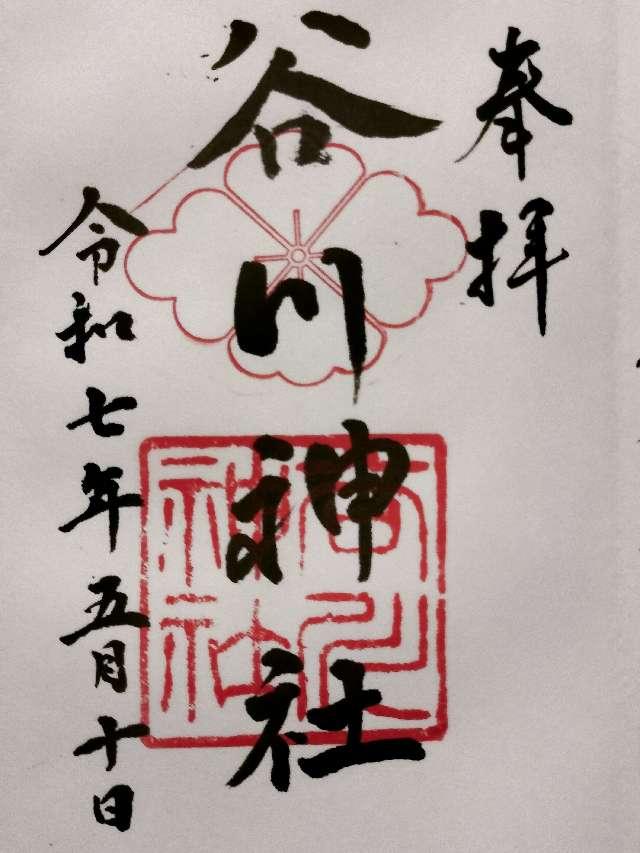 奉拝
谷川神社
令和七年五月十日